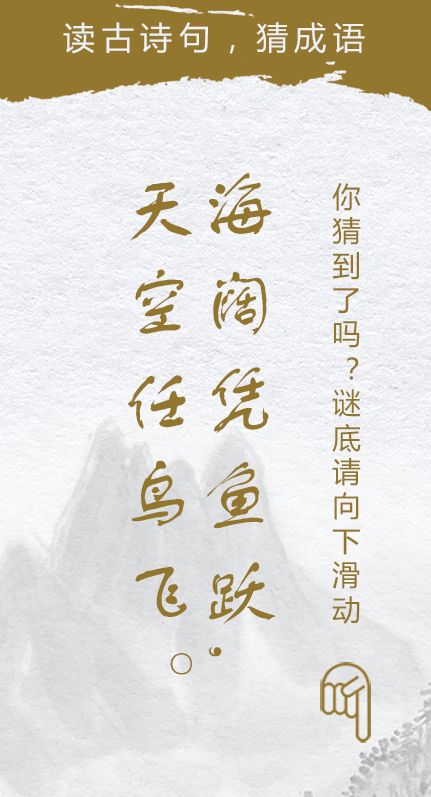 读古诗句，猜成语
你猜到了吗？谜底请向下滑动
海阔凭鱼跃，
天空任鸟飞。